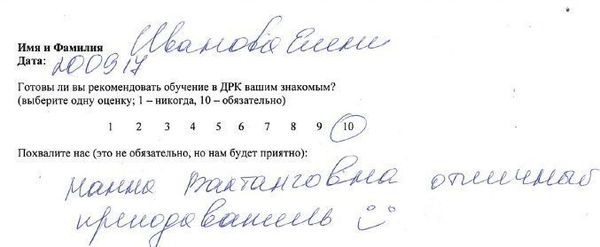 Имя и Фамилия Иванова Елена
Дата: 200917
Готовы ли вы рекомендовать обучение в ДРК вашим знакомым?
(выберите одну оценку; 1 – никогда, 10 – обязательно)
1 2 3 4 5 6 7 8 9 10
Похвалите нас (это не обязательно, но нам будет приятно):
Манна Вахтанговна отличный
преподаватель